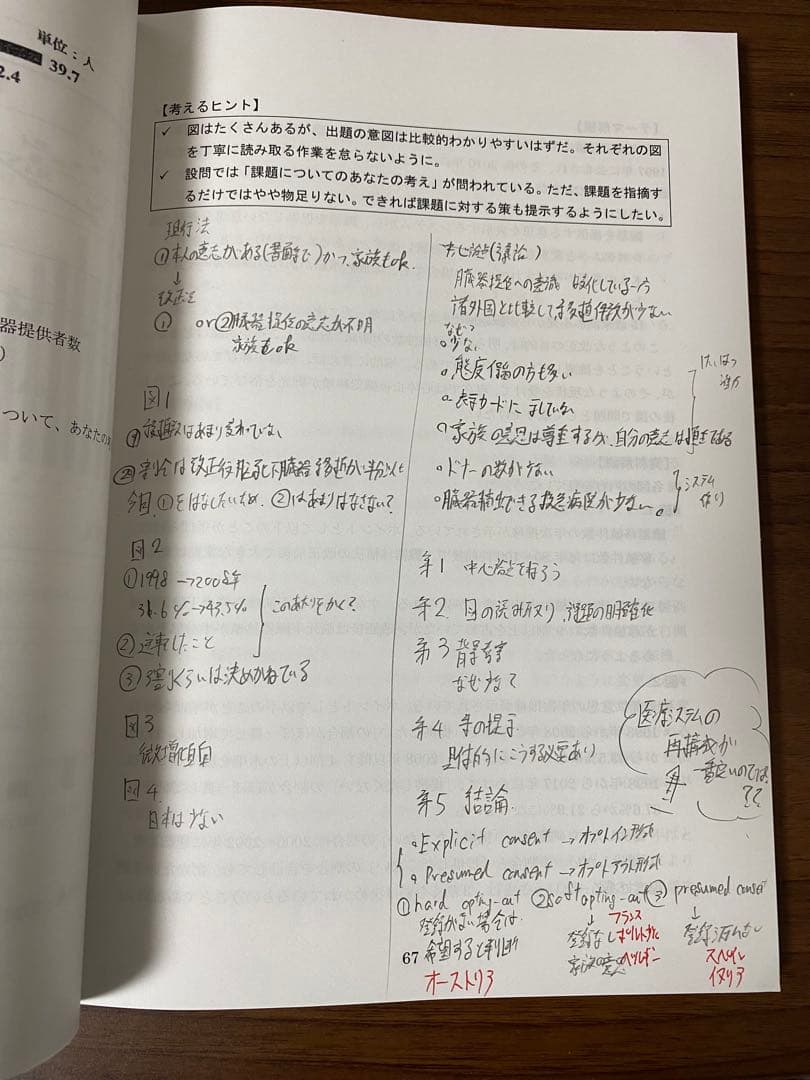 単位：人
39.7
2.4
器提供者数
)
ついて、あなたの
【考えるヒント】
✓ 図はたくさんあるが、出題の意図は比較的わかりやすいはずだ。それぞれの図
を丁寧に読み取る作業を怠らないように。
✓ 設問では「課題についてのあなたの考え」が問われている。ただ、課題を指摘す
るだけではやや物足りない。できれば課題に対する策も提示するようにしたい。
現行法
①本人の意志がある(書面で)かつ、家族もok.
↓
改正法
① or②臓器提供の意志が不明
家族もok
図1
今回、①をはなしたいため、②はあまりはなさない?
図2
①1998→2008年
36.6%→43.5%
このあたりをかく?
②逆転したこと
③3割くらいは決めかねている
図3
微増傾向
図4
日本は少ない
中心論点(議論)
臓器提供への意識
諸外国と比較して移植件数が少ない
なぜ?
少ない
家族の意思は尊重するが、自分の意志は
ドナーの数が少ない
臓器摘出できる救急病院が少ない。
システム
作り
第1 中心論点をねらう
第2 図の読み取り、課題の明確化
第3 背景考察
なぜ少なくて
第4 策の提示
具体的にこうする必要あり
第5 結論
医療システムの
再構成が
一番良いのでは
??
Explicit consent → オプトイン形式
Presumed consent → オプトアウト形式
①hard opting-out ②soft opting-out ③presumed consent
登録がない場合は
希望すると判断
オーストリア
↓
登録なし
フランス
ポルトガル
ベルギー
↓
スペイン
イタリア
67